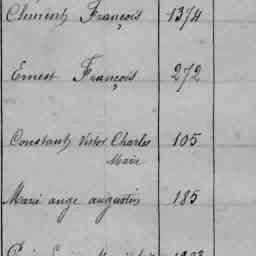 Clément François 1374
Ernest François 272
Constant Victor Charles 105
Marie
Marie ange augustin 185